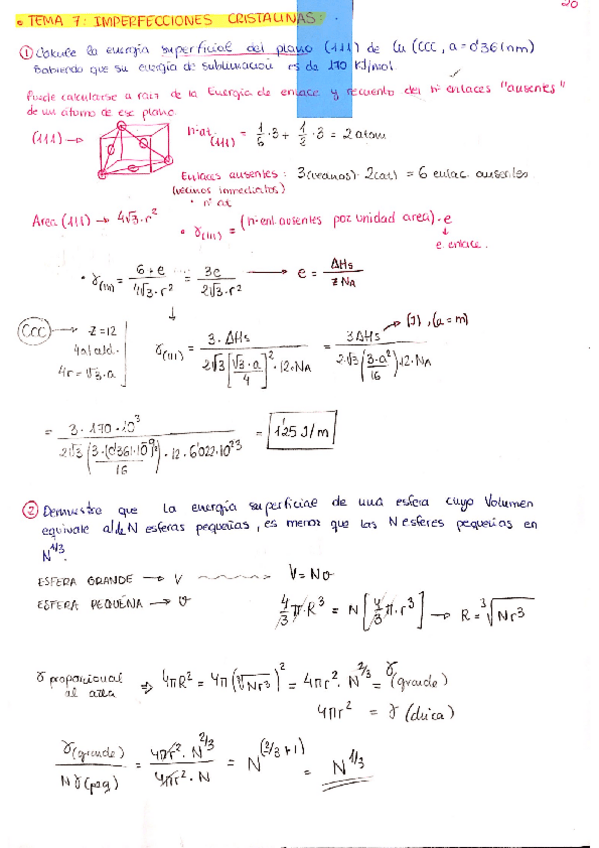 20
• TEMA 7: IMPERFECCIONES CRISTALINAS:
① Calcule la energía superficial del plano (111) de Cu (CCC, a = 0'361 nm)
Sabiendo que su energía de sublimación es de 170 KJ/mol.
Puede calcularse a raiz de la Energía de enlace y recuento del nº enlaces "ausentes"
de un átomo de ese plano.
(111) → nº at.(111) = 1/6 · 3 + 1/2 · 3 = 2 atom
Enlaces ausentes: 3(vecinos) · 2(at) = 6 enlac. ausentes
(vecinos inmediatos)
• nº at
Area (111) → 4√3 · r² • γ(111) = (nº enl. ausentes por unidad area) · e
↓
e. enlace.
• γ(111) = 6 · e / 4√3 · r² = 3e / 2√3 · r² → e = ΔHs / z NA
↓
CCC → Z = 12
4at/ald.
4r = √3 · a
γ(111) = 3 · ΔHs / 2√3 [√3 · a / 4]² · 12 · NA = 3ΔHs / 2√3 (3 · a² / 16) 12 · NA → (J), (a = m)
= 3 · 170 · 10³ / 2√3 (3 · (0'361 · 10⁻⁹)² / 16) · 12 · 6'022 · 10²³ = 1'25 J/m
② Demuestre que la energía superficial de una esfera cuyo Volumen
equivale al de N esferas pequeñas, es menor que las N esferas pequeñas en
N^1/3.
ESFERA GRANDE → V V = Nv
ESFERA PEQUEÑA → v 4/3 π · R³ = N [4/3 π · r³] → R = ³√Nr³
γ proporcional al area ⇒ 4πR² = 4π (³√Nr³)² = 4πr² · N^2/3 = γ(grande)
4πr² = γ (chica)
γ(grande) / Nγ(peq) = 4πr² · N^2/3 / 4πr² · N = N^(2/3+1) = N^1/3